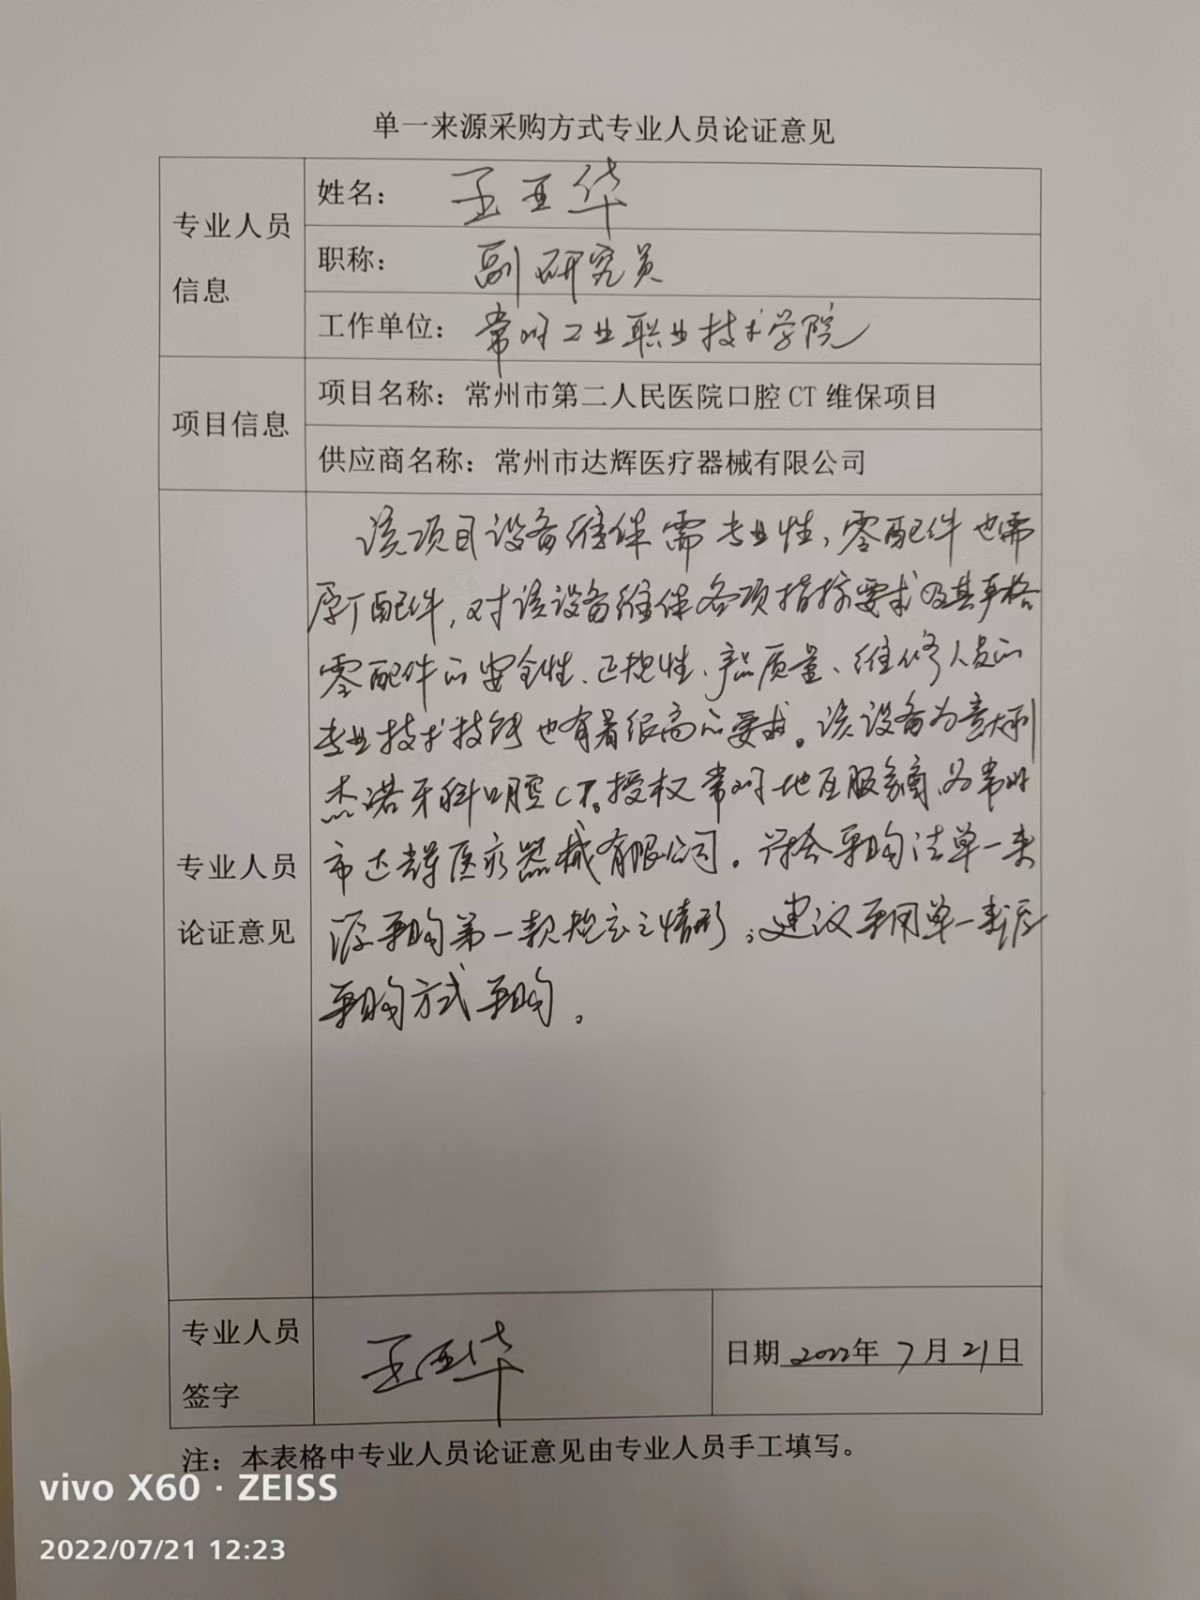 单一来源采购方式专业人员论证意见
专业人员
信息
姓名： 王亚华
职称： 副研究员
工作单位： 常州工业职业技术学院
项目信息
项目名称：常州市第二人民医院口腔CT维保项目
供应商名称：常州市达辉医疗器械有限公司
专业人员
论证意见
该项目设备维保需专业性，零配件也需
原厂配件，对该设备维保各项指标要求及其严格
零配件的安全性、正规性、产品质量、维修人员的
专业技术技能也有着很高的要求。该设备为意大利
杰诺牙科口腔CT。授权常州地区服务商为常州
市达辉医疗器械有限公司。符合采购法单一来
源采购第一款规定之情形，建议采用单一来源
采购方式采购。
专业人员
签字
王亚华
日期 2022年 7月 21日
注：本表格中专业人员论证意见由专业人员手工填写。
vivo X60 · ZEISS
2022/07/21 12:23